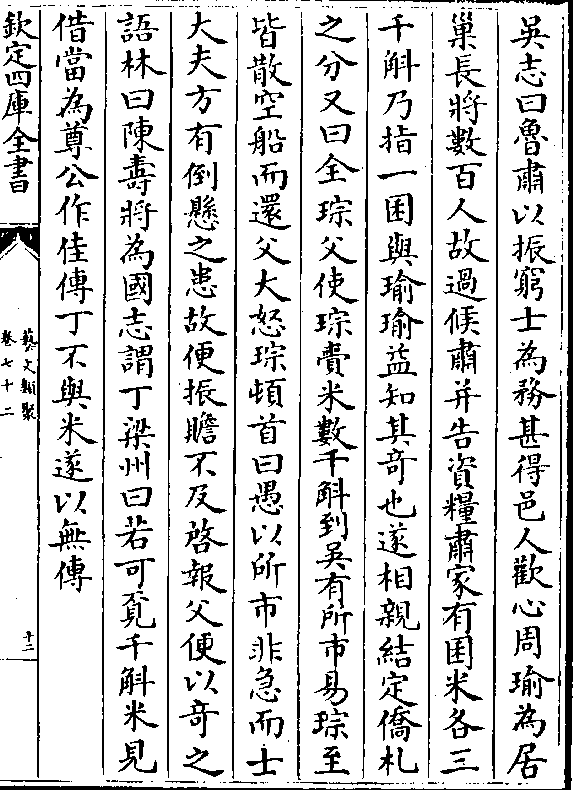 吳志曰魯肅以振窮士為務甚得邑人歡心周瑜為居
巢長將數百人故過候肅并告資糧肅家有囷米各三
千斛乃指一囷與瑜瑜益知其奇也遂相親結定僑札
之分又曰全琮父使琮賫米數千斛到吳有所市易琮至
皆散空船而還父大怒琮頓首曰愚以所市非急而士
大夫方有倒懸之患故便振贍不及啓報父便以奇之
語林曰陳壽將為國志謂丁梁州曰若可覓千斛米見
借當為尊公作佳傳丁不與米遂以無傳
欽定四庫全書
藝文類聚
卷七十二
十二